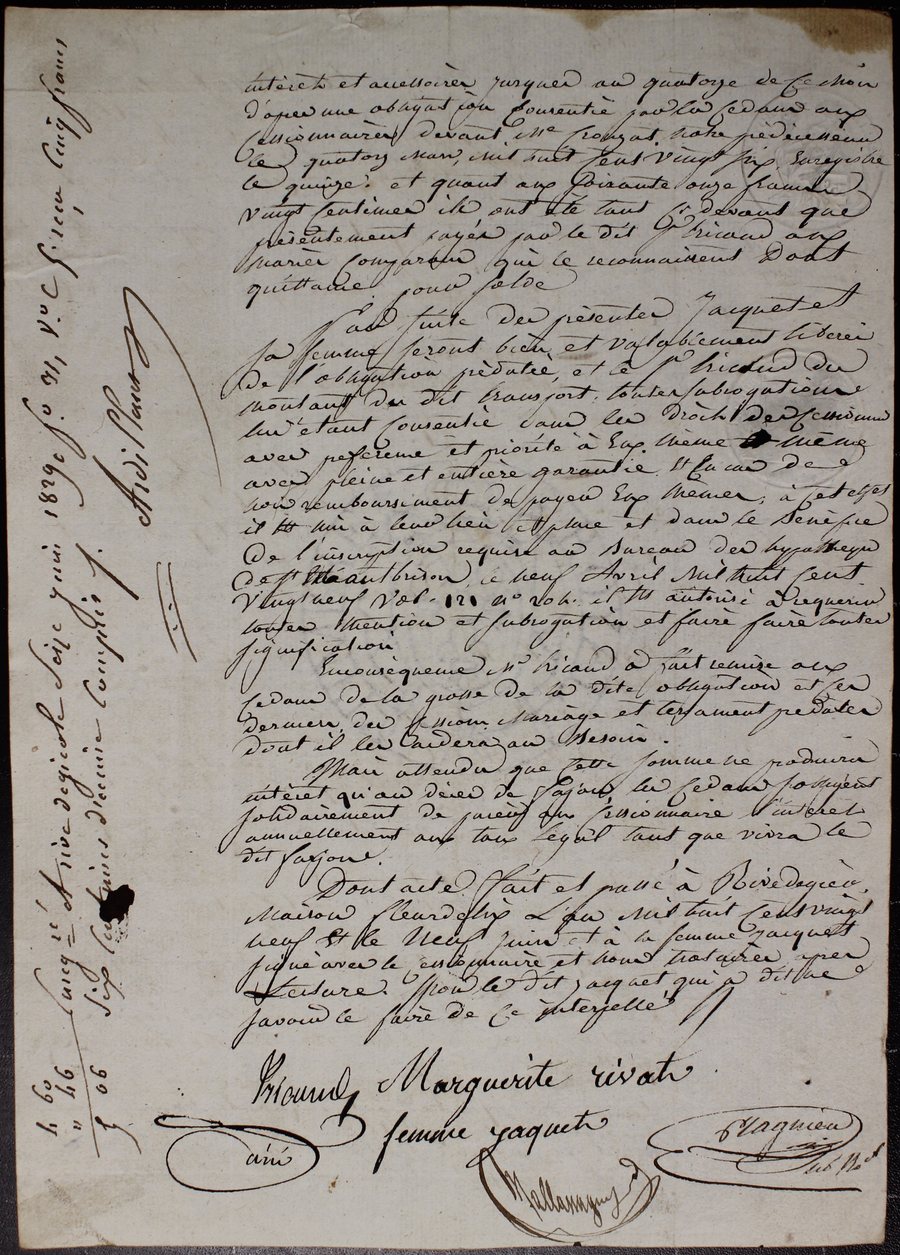 intérêts et accessoires jusques au quatorze de ce mois
d'apres une obligation Consentie par les Cedans aux
Cessionnaires devant Me Crouzat notre prédécesseur
le quatorz Mars, mil huit Cent vingt six Enregistré
le quinze. et quant aux Soixante onze francs
vingt Centimes ils ont été tant Cy devant que
présentement payés par le dit Sr Ricaud aux
mariés Comparans qui le reconnaissent Dont
quittance pour solde
Par suite des présentes Jacquet et
sa femme seront bien et valablement libérés
de l'obligation prédatée, et le Sr Ricaud du
montant du dit transport, toutes subrogations
lui étant Consentie dans les droits des Cessionn
avec preference et priorité à Eux même même
avec pleine et entière garantie Et En cas de
non remboursement de payer Eux Mêmes, à Cet effet
il Est mis à leur lieu et place et dans le Bénéfice
de l'inscription requise au Bureau des hypothèques
de Mantbrison, le neuf Avril Mil huit Cent
vingt neuf Vol. 121 no 204. il Est autorisé à requerir
toutes Mention et subrogation et faire faire toutes
signification
En conséquence Mr Ricaud a fait remise aux
Cedans de la grosse de la dite obligation et Ces
derniers des Cession Mariage et testament predatés
dont il les aidera au Besoin.
Mais attendu que Cette somme ne produira
intéret qu'au décès de Farjon les Cedans s'obligent
solidairement de payer au Cessionnaire l'interet
annuellement au taux légal tant que vivra le
dit farjon.
Dont acte. fait et passé à Rivedegier,
Maison fleurdelix L'an Mil huit Cent vingt
neuf Et le Neuf juin et à la femme Jacquet
signé avec le Cessionnaire et nous notaires apres
Lecture. non le dit Jacquet qui a dit ne
savoir le faire de Ce interpellé
Ricaud Marguerite rivat
femme jaquet
ainé
Enreg.ré A rive de gier le Seize juin 1829 fo. 31, Vo. C. 5 reçu Cinq francs
six Centimes dixieme Compris
4 60
" 46
5 06